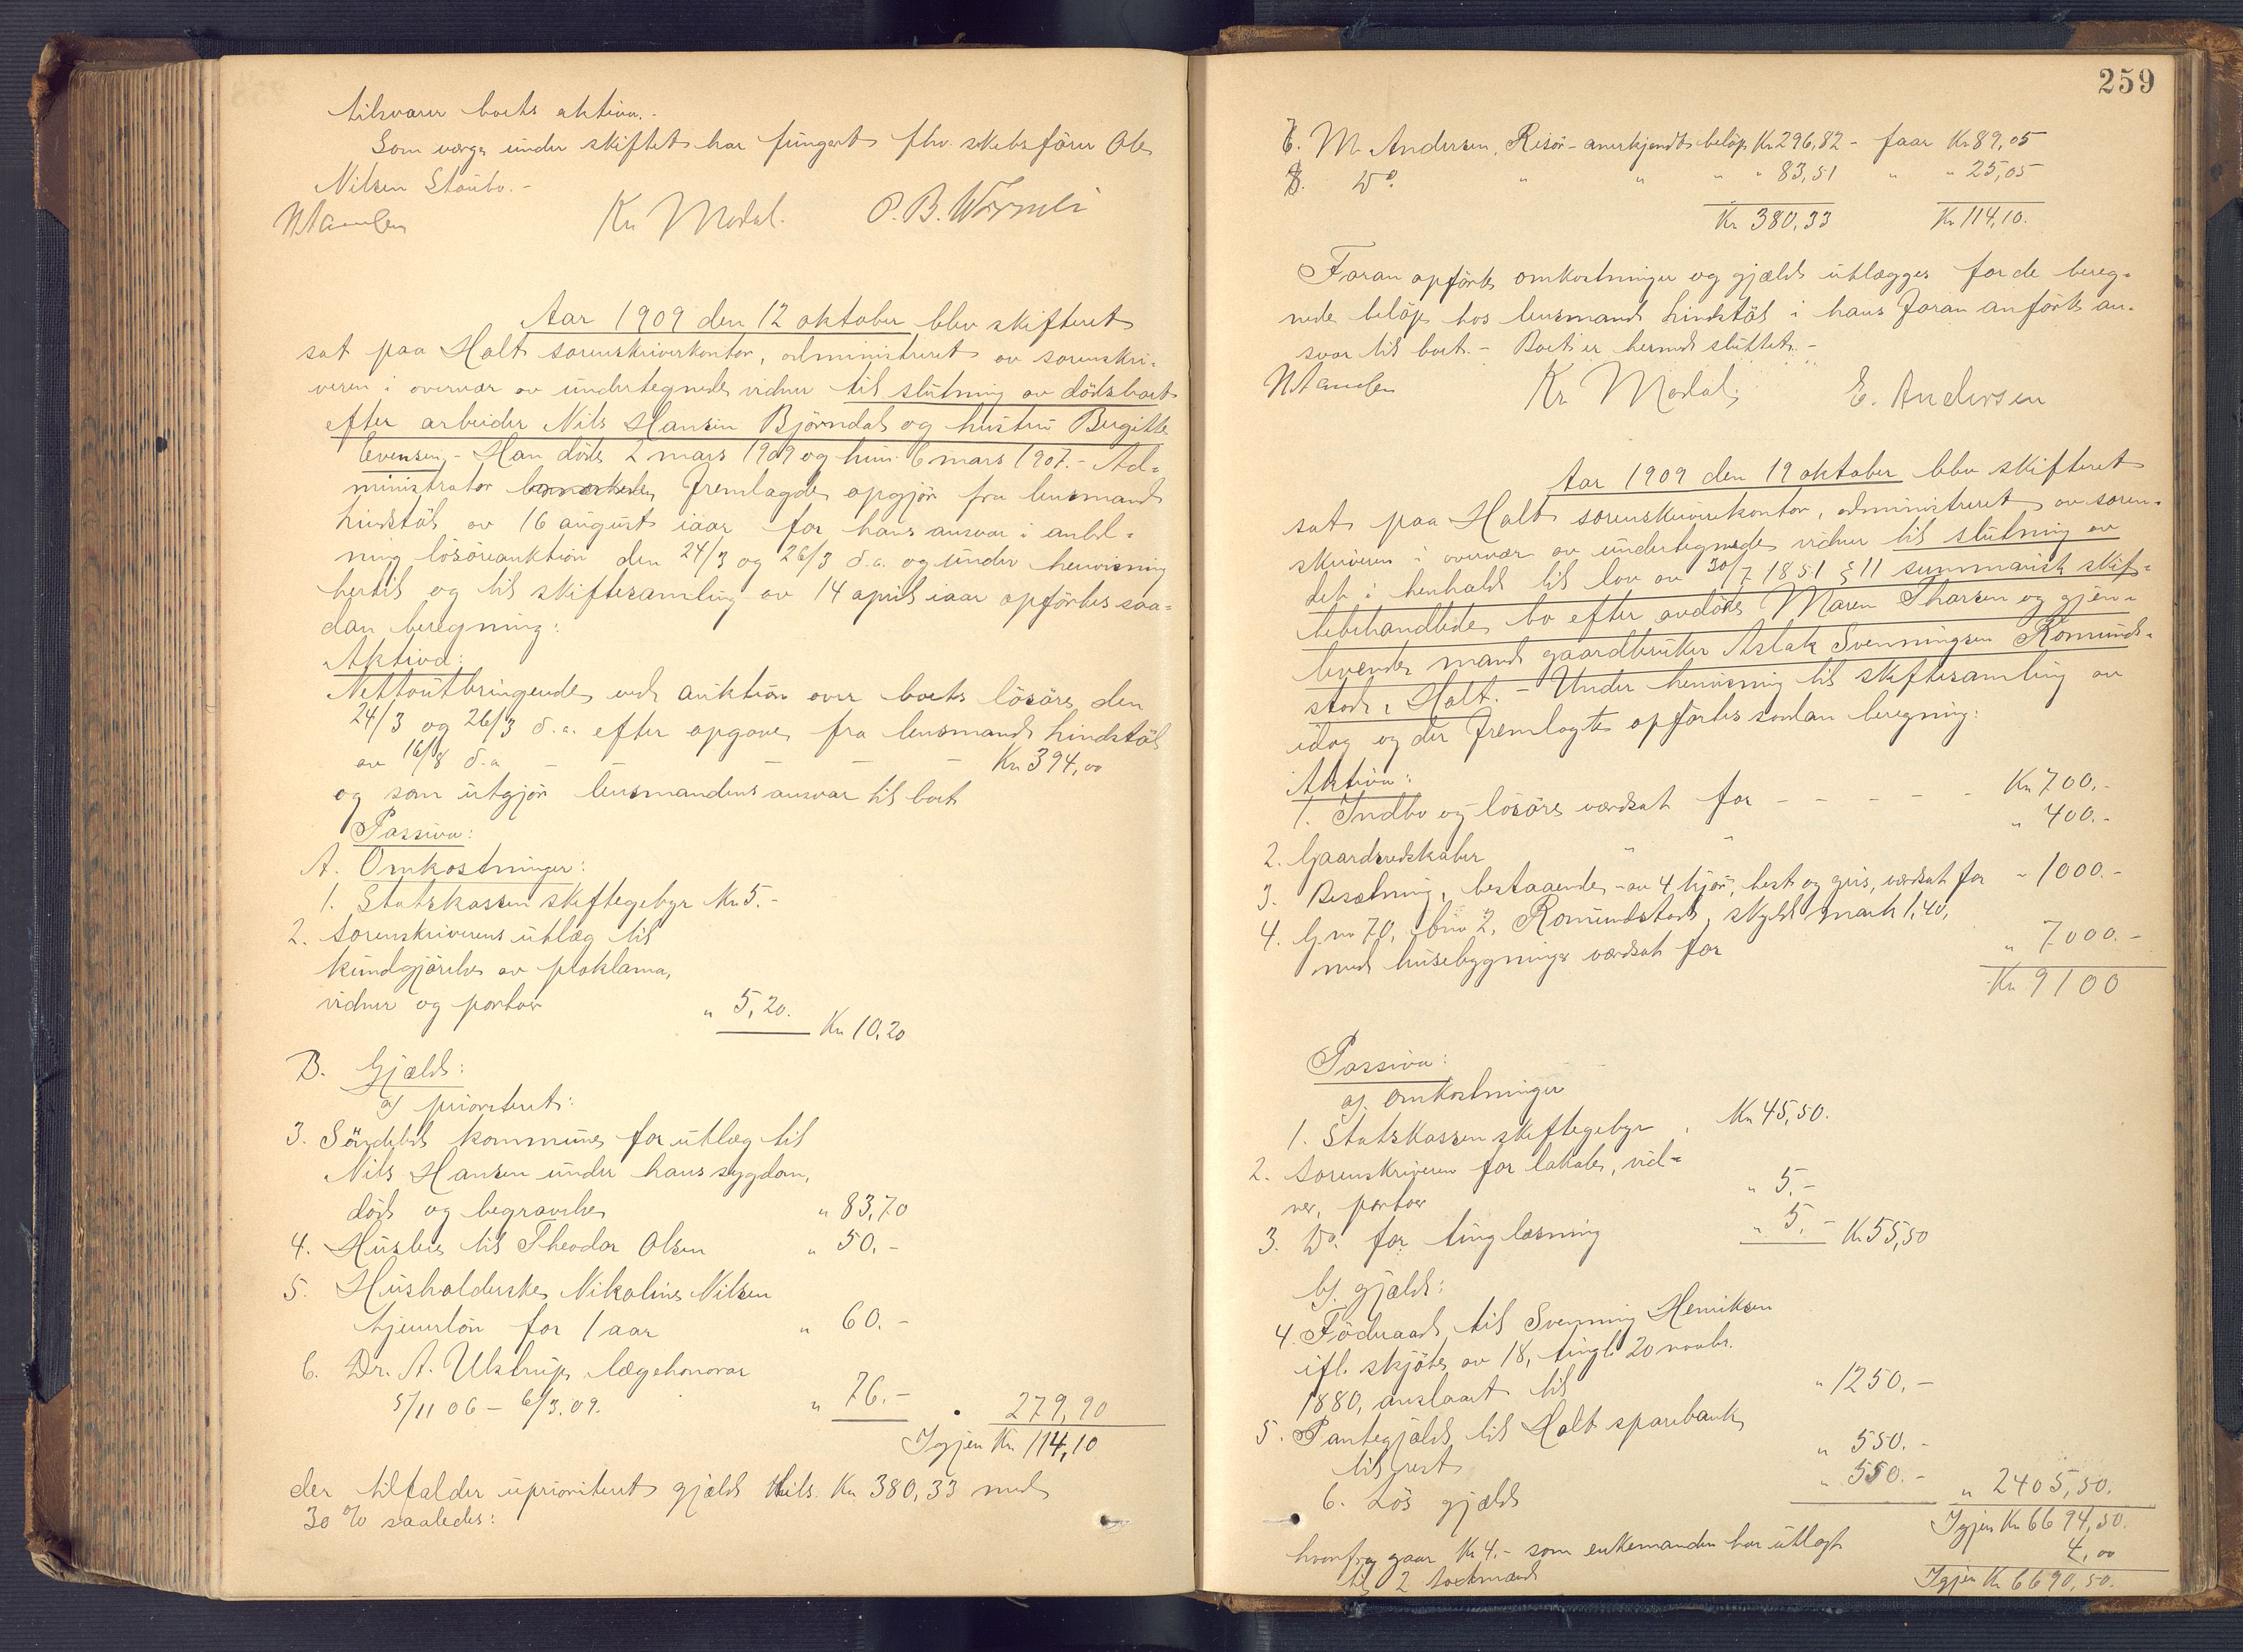 tilsvarer boets aktiva.-
Som værge under skiftet har fungert fhv. skibsfører Ole
Nilsen Staubo.-
Kr Modal. O.B. Wormli
Aar 1909 den 12 oktober blev skifteret
sat paa Holt sorenskriverkontor, administreret av sorenskri-
veren i overvær av undertegnede vidner til slutning av dødsboet
efter arbeider Nils Hansen Bjørndal og hustru Birgitte
Evensen.- Han døde 2 mars 1909 og hun 6 mars 1907.- Ad-
ministrator bemerkede fremlagde opgjør fra lensmand
Lindstøl av 16 august iaar for hans ansvar i anled-
ning løsøreauktion den 24/3 og 26/3 d.a. og under henvisning
hertil og til skiftesamling av 14 april iaar opførtes saa-
dan beregning:
Aktiva:
Nettoutbringende ved auktion over boets løsøre den
24/3 og 26/3 d.a. efter opgave fra lensmand Lindstøl
av 16/8 d.a - - - - Kr 394,00
og som utgjør lensmandens ansvar til boet
Passiva:
A. Omkostninger:
1. Statskassen skiftegebyr Kr 5.-
2. Sorenskriverens utlæg til
kundgjørelse av proklama,
vidner og portoer " 5,20. Kr 10,20
B. Gjæld:
a) prioritert:
3. Søndeled kommune for utlæg til
Nils Hansen under hans sygdom,
død og begravelse " 83,70
4. Husleie til Theodor Olsen " 50.-
5. Husholderske Nikoline Nilsen
tjenerløn for 1 aar " 60.-
6. Dr. A. Ulstrup lægehonorar
5/11 06 - 6/3.09. " 76.- 279,90
Igjen Kr 114,10
der tilfalder uprioritert gjæld tils. Kr 380,33 med
30 % saaledes:
259
7. M. Andersen, Risør - anerkjendt beløp Kr 296,82 - faar Kr 89,05
8. Do. " " " " 83,51 " " 25,05
Kr 380,33 Kr 114,10.
Foran opførte omkostninger og gjæld utlægges for de bereg-
nede beløp hos lensmand Lindstøl i hans foran anførte an-
svar til boet.- Boet er hermed sluttet.-
Kr Modal. E. Andersen
Aar 1909 den 19 oktober blev skifteret
sat paa Holt sorenskriverkontor, administreret av soren-
skriveren i overvær av undertegnede vidner til slutning av
det i henhold til lov av 30/7 1851 § 11 summarisk skif-
tebehandlede bo efter avdøde Maren Tharsen og gjen-
levende mand gaardbruker Aslak Svenningsen Romund-
stad i Holt.- Under henvisning til skiftesamling av
idag og der fremlagte opførtes saadan beregning:
Aktiva:
1. Indbo og løsøre værdsat for - - - - - Kr 700.-
2. Gaardsredskaber " " " 400.-
3. Besætning, bestaaende av 4 kjør, hest og gris, værdsat for " 1000.-
4. G.no 70, bno 2, Romundstad, skyld mark 1,40,
med husebygninger værdsat for " 7000.-
Kr 9100
Passiva:
a). omkostninger
1. Statskassen skiftegebyr . Kr 45,50.
2. Sorenskriveren for lokale, vid-
ner, portoer " 5.-
3. Do. for tinglæsning " 5.- Kr 55,50
b). gjæld:
4. Føderaad til Svenning Henriksen
ifl. skjøte av 18, tingl. 20 novbr.
1880, anslaaet til " 1250.-
5. Pantegjæld til Holt sparebank
til rest " 550.-
6. Løs gjæld " 550.- " 2405,50.
Igjen Kr 6694,50.
hvorfra gaar Kr 4.- som enkemanden har utlagt 4,00
til 2 taxtmænd Igjen Kr 6690,50.